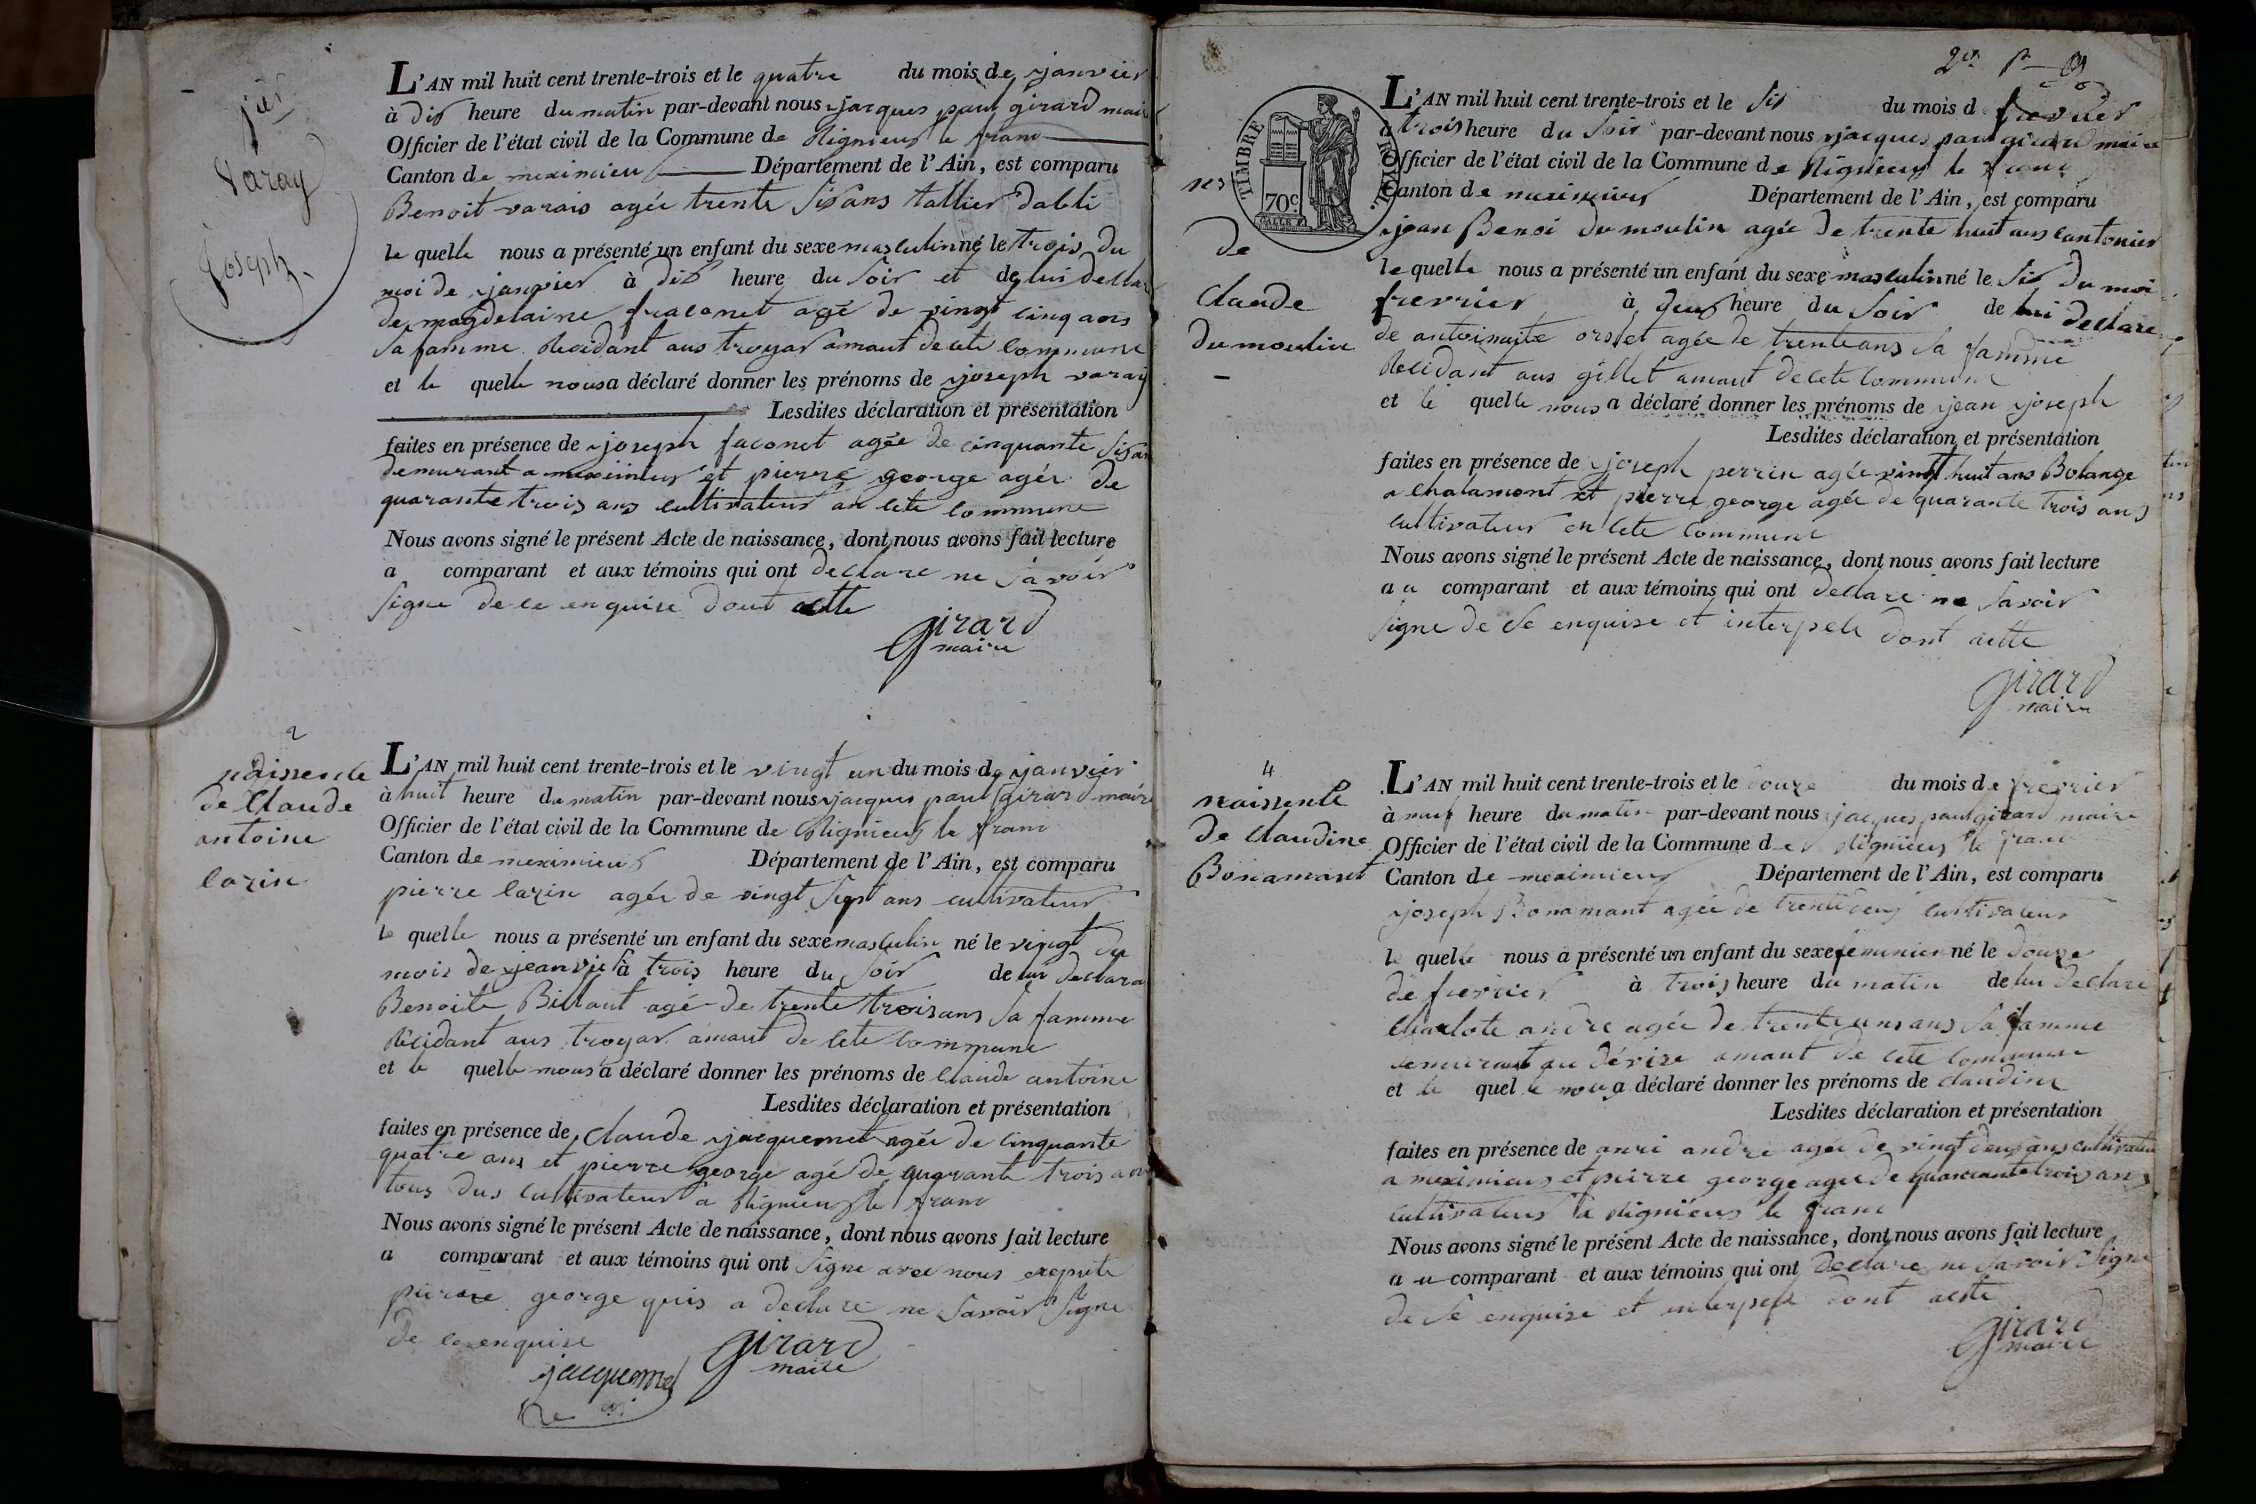 jer
Varay
Joseph
L'AN mil huit cent trente-trois et le quatre du mois de janvier
à dix heure du matin par-devant nous jacques paul girard maire
Officier de l'état civil de la Commune de Rignieux le franc
Canton de meximieux Département de l'Ain, est comparu
Benoit varais agée trente six ans
le quelle nous a présenté un enfant du sexe masculin né le trois du
moi de janvier à dix heure du soir et de lui declare
de magdelaine fraconet agé de vingt cinq ans
sa famme Residant aus troyas amaut de cete Commune
et le quelle nous a déclaré donner les prénoms de joseph varay
Lesdites déclaration et présentation
faites en présence de joseph faconet agée de cinquante six an
demurant a meximieux et pierre george agée de
quarante trois ans cultivateur an cete commune
Nous avons signé le présent Acte de naissance, dont nous avons fait lecture
a comparant et aux témoins qui ont declare ne savoir
signe de ce enquise dont acte
girard
maire
2
naissence
de Claude
antoine
lazin
L'AN mil huit cent trente-trois et le vingt un du mois de janvier
à huit heure du matin par-devant nous jacques paul girard maire
Officier de l'état civil de la Commune de Rignieux le franc
Canton de meximieux Département de l'Ain, est comparu
pierre lazin agée de vingt sept ans cultivateur
le quelle nous a présenté un enfant du sexe masculin né le vingt du
mois de jeanvier à trois heure du soir de lui declara
Benoite Billaut agé de trente trois ans sa famme
Residant aus troyas amaut de cete commune
et le quelle nous a déclaré donner les prénoms de Claude antoine
Lesdites déclaration et présentation
faites en présence de Claude jacquemet agée de cinquante
quatre ans et pierre george agé de quarante trois an
tous dus cultivateur a Rignieux le franc
Nous avons signé le présent Acte de naissance, dont nous avons fait lecture
a comparant et aux témoins qui ont signe avec nous exepute
pierre george quis a declare ne savoir signe
de ce enquise
girard
maire
jacquemet
2er
TIMBRE ROYAL
70c
de
Claude
dumoulin
L'AN mil huit cent trente-trois et le six du mois d frevrier
à trois heure du soir par-devant nous jacques paul girard maire
Officier de l'état civil de la Commune de Rignieux le franc
Canton de meximieux Département de l'Ain, est comparu
jean Benoi dumoulin agée de trente huit ans cantonier
le quelle nous a présenté un enfant du sexe masculin né le six du moi
frevrier à deux heure du soir de lui declare
de antoinaite orslet agée de trente ans sa famme
Residant aus gillet amaut de cete commune
et le quelle nous a déclaré donner les prénoms de jean joseph
Lesdites déclaration et présentation
faites en présence de joseph perrin agée vingt huit ans Bolange
a Chalamont et pierre george agée de quarante trois ans
cultivateur en cete commune
Nous avons signé le présent Acte de naissance, dont nous avons fait lecture
a u comparant et aux témoins qui ont declaré ne savoir
signe de se enquise et interpele dont acte
girard
maire
4
naissence
de Claudine
Bonamant
L'AN mil huit cent trente-trois et le douze du mois de frevrier
à neuf heure du matin par-devant nous jacques paul girard maire
Officier de l'état civil de la Commune de Rignieux le franc
Canton de meximieux Département de l'Ain, est comparu
joseph Bonamant agée de trente deux cultivateur
le quelle nous a présenté un enfant du sexe feminien né le douze
de fievrier à trois heure du matin de lui declare
Charlote andre agée de trente uns ans sa famme
demurant au dévire amaut de cete commune
et le quel le nous a déclaré donner les prénoms de claudine
Lesdites déclaration et présentation
faites en présence de anri andre agée de vingt deux ans cultivateur
a meximieux et pierre george agee de quarante trois ans
cultivateur a Rignieux le franc
Nous avons signé le présent Acte de naissance, dont nous avons fait lecture
a u comparant et aux témoins qui ont declare ne savoir signe
de se enquise et interpele dont acte
girard
maire